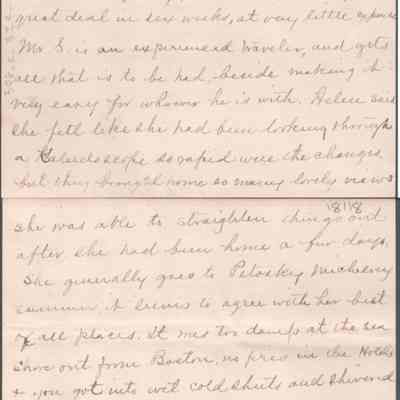 great deal in six weeks, at very little expense
Mr S. is an experienced traveler, and gets
all that is to be had, beside making it
very easy for whoever he is with. Helen said
she felt like she had been looking through
a Kaleidoscope so rapid were the changes
but they brought home so many lovely views
18118
she was able to straighten things out
after she had been home a few days,
She generally goes to Petoskey Mich every
summer it seems to agree with her best
of all places. It was too damp at the sea
shore out from Boston, no fires in the Hotels
+ you got into wet cold sheets and shivered